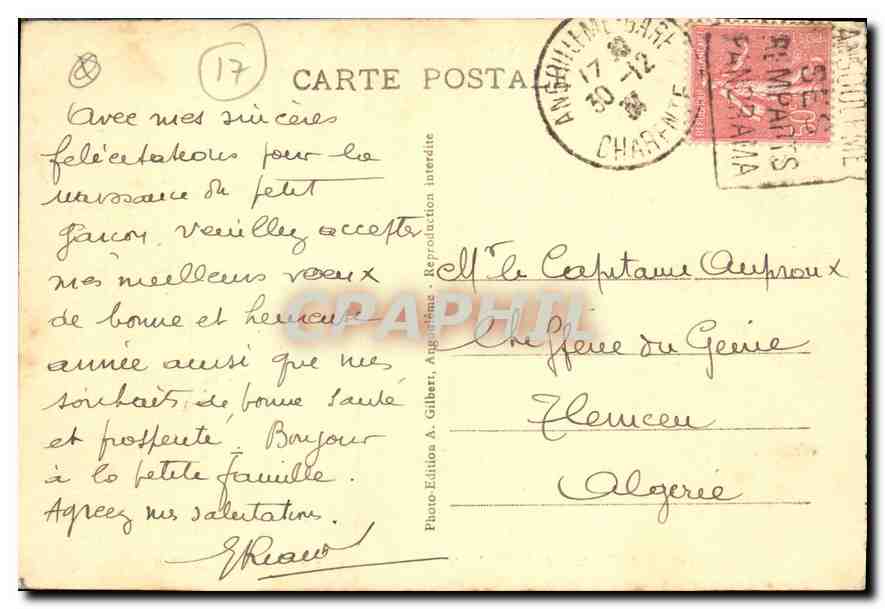 17
CARTE POSTALE
ANGOULEME-GARE
17
30 -12
CHARENTE
ANGOULEME
SES
REMPARTS
PANORAMA
Avec mes sincères
félicitations pour la
naissance du petit
garçon, veuillez accepter
mes meilleurs voeux
de bonne et heureuse
année ainsi que mes
souhaits de bonne santé
et prospérité. Bonjour
à la petite famille.
Agréez mes salutations.
Photo-Edition A. Gilbert, Angoulême - Reproduction interdite
Mr le Capitaine Auproux
du Génie
Tlemcen
Algérie
CPAPHIL